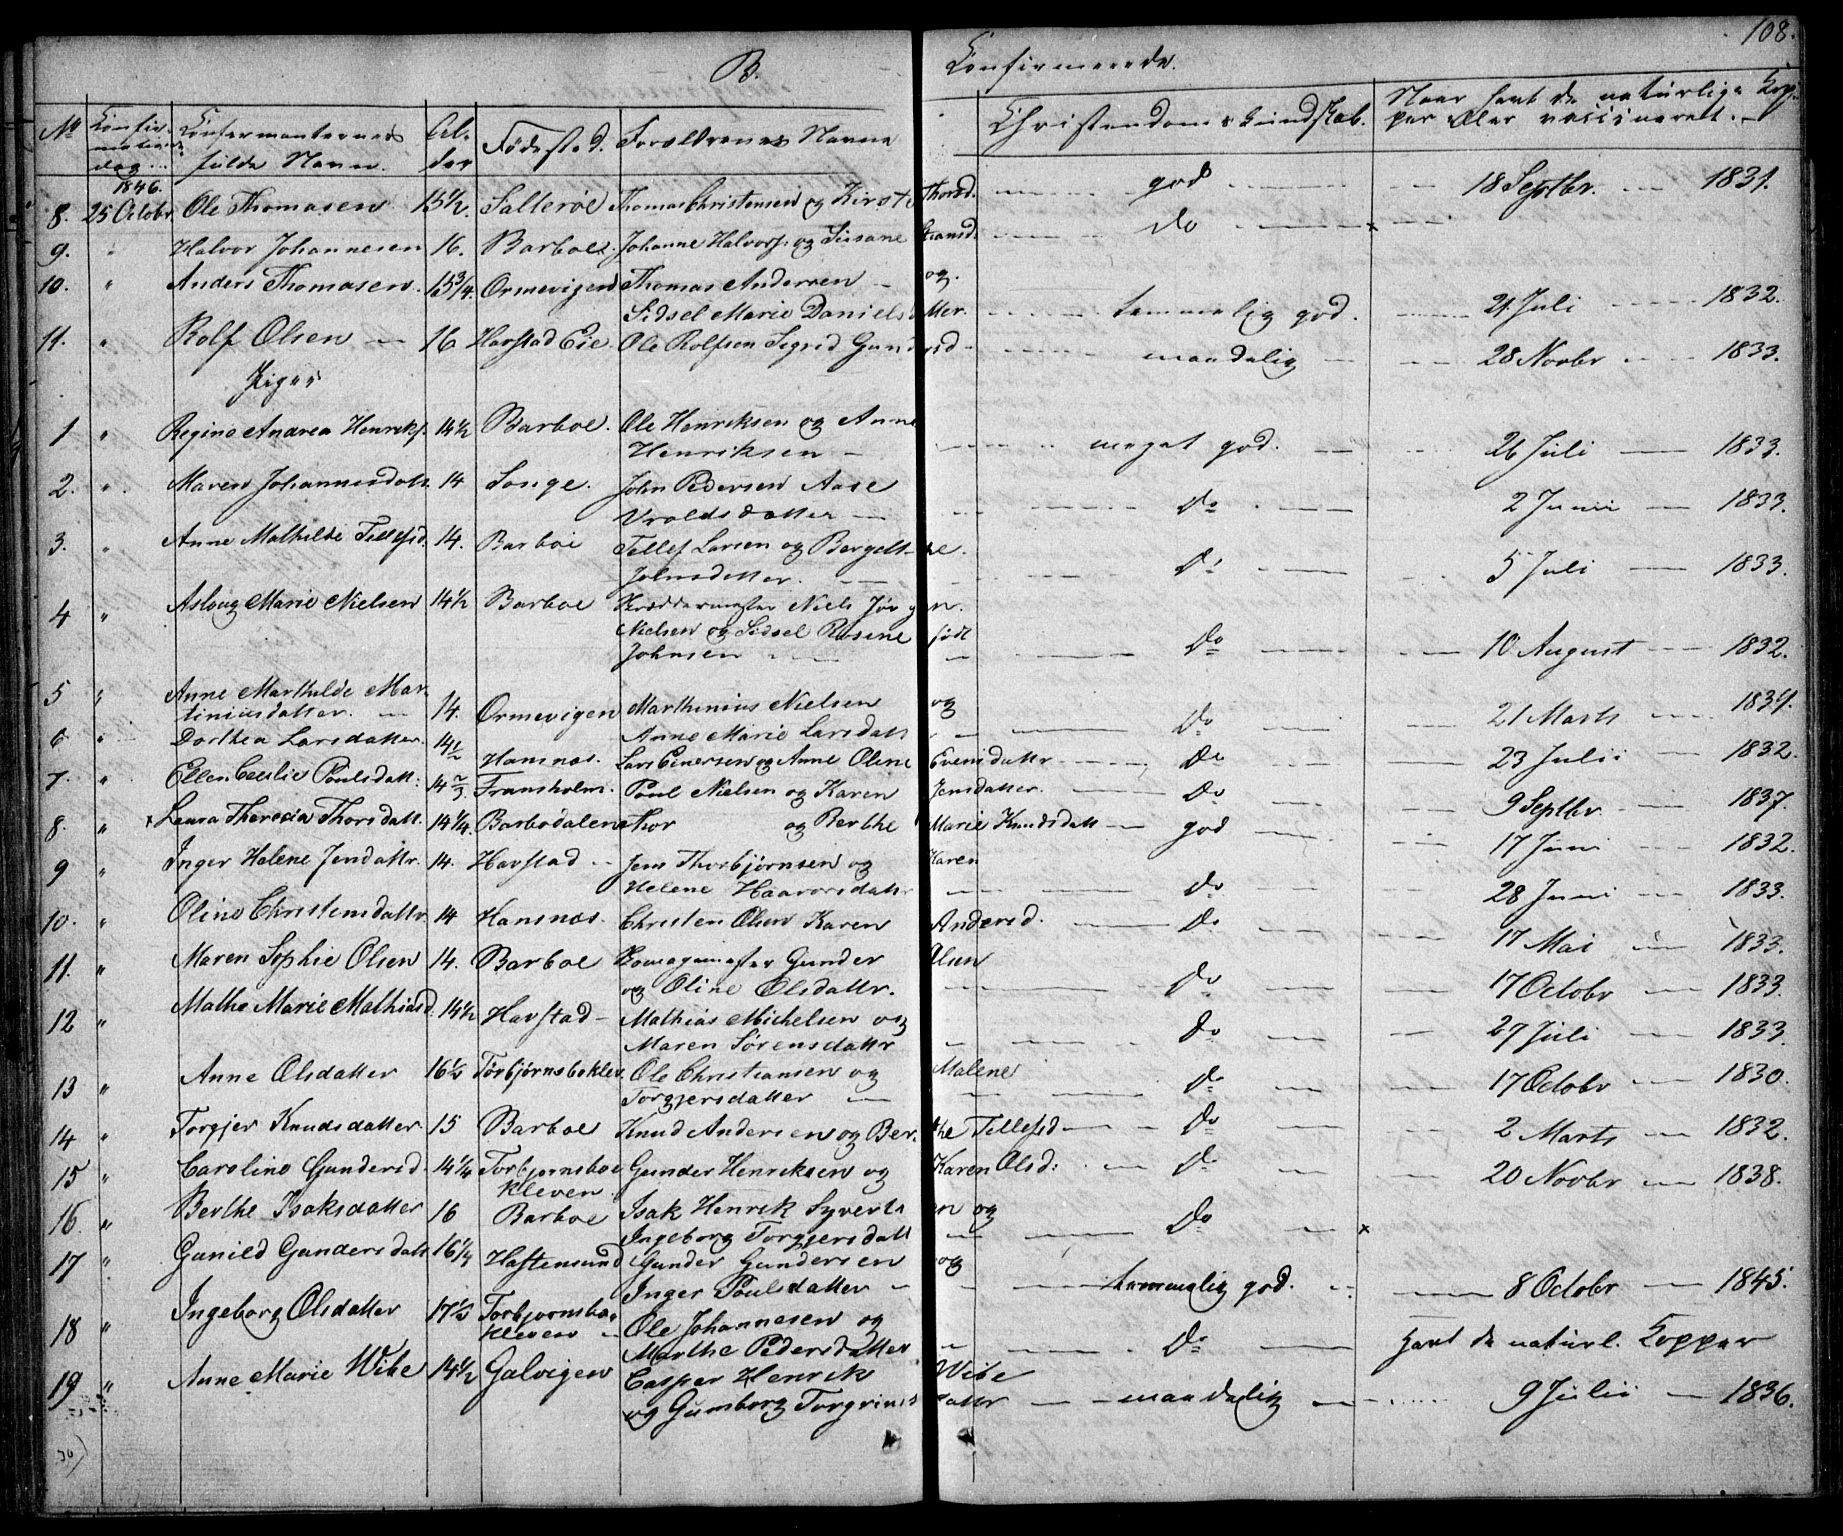 108.
B. Confirmerede.
No Confirmations dag. Confirmanternes fulde Navne. Alder Fødested. Forældrenes Navne Christendoms Kundskab. Naar havt de naturlige Kopper eller vaccineret.
1846.
8. 25 Octobr. Ole Thomasen 15 1/2. Salterøe Thomas Christensen og Kirste Thorsd. god 18 Septbr. 1831.
9. " Halvor Johannesen 16. Barboe. Johanne Halvors. og Susane do x
10. " Anders Thomasen. 15 3/4. Ormevigen Thomas Andersen og
Sidsel Marie Daniels tter. temmelig god. 21 Juli 1832.
11. " Rolf Olsen 16 Havstad Eie Ole Rolfsen Sigrid Gundersd maadelig 28 Novbr 1833.
Piger
1 " Regine Andrea Henriks. 14 1/2 Barboe. Ole Henriksen og Anne
Henriksen meget god. 26 Juli 1833.
2. " Maren Johannesdatt. 14 Songe. John Pedersen Aase
Vroldsdatter Do 2 Juni 1833.
3. " Anne Mathilde Tellefsd. 14. Barboe Tellef Larsen og Bergette
Johnsdatter. Do 5 Juli 1833.
4 " Aslaug Marie Nielsen 14 1/2 Barboe Niels Jørgen
Nielsen og Sidsel Rosine født
Johnsen Do 10 August 1832.
5 " Anne Marthilde Mar-
tiniusdatter. 14. Ormevigen Marthinius Nielsen og
Anne Marie Larsdatt Do 21 Marts 1834.
6 " Dorthea Larsdatter. 14 1/2 Hansnæs. Lars Einersen og Anne Oline Evensdattr Do 23 Julii 1832.
7. " Ellen Cecilie Poulsdatt: 14 2/3 Fransholm. Poul Nielsen og Karen Jensdatter. Do 9 Septbr. 1837.
8. " x Laura Theresia Thorsdatt. 14 1/4. Barbodalen Thor og Berthe Marie Knudsdatt god 17 Juni 1832.
9 " Inger Helene Jensdattr. 14. Havstad Jens Thorbjørnsen og Karen
Helene Haavorsdattr Do 28 Juni 1833.
10. " Oline Christensdattr. 14 Hansnæs. Christen Olsen Karen Andersd. Do 17 Mai 1833.
11. " Maren Sophie Olsen 14. Barboe Gunder Olsen
og Oline Olsdattr. Do 17 Octobr 1833.
12 " Mathe Marie Mathiasd. 14 1/2 Havstad Mathias Michelsen og
Maren Sørensdattr Do 27 Juli 1833.
13 " Anne Olsdatter 16 1/2 Tørbjørnsbokleven. Ole Christiansen og Malene
Torgjersdatter Do 17 Octobr 1830.
14 " Torgjer Knudsdatter. 15 Barboe Knud Andersen og Berthe Tellefsd Do 2 Marts 1832.
15 " Caroline Gundersd. 14 1/4 Torbjornsboe
kleven. Gunder Henriksen og Karen Olsd: Do 20 Novbr 1838.
16 " Berthe Isaksdatter 16 Barboe Isak Henrik Syvertsen og
Ingeborg Torgjersdatt Do x
17 " Gunild Gundersdatt 16 1/4 Haftensund Gunder Gundersen og
Inger Poulsdatter temmelig god. 8 Octobr 1845.
18 " Ingeborg Olsdatter 17 1/2 Torbjornsbo
kleven Ole Johannesen og
Marthe Pedersdatter Do Havt de naturl. Kopper
19 " Anne Marie Wibe 14 1/2 Galvigen Casper Henrik Wibe
og Gumborg Torgrimsdattr maadelig 9 Julii 1836.
30)